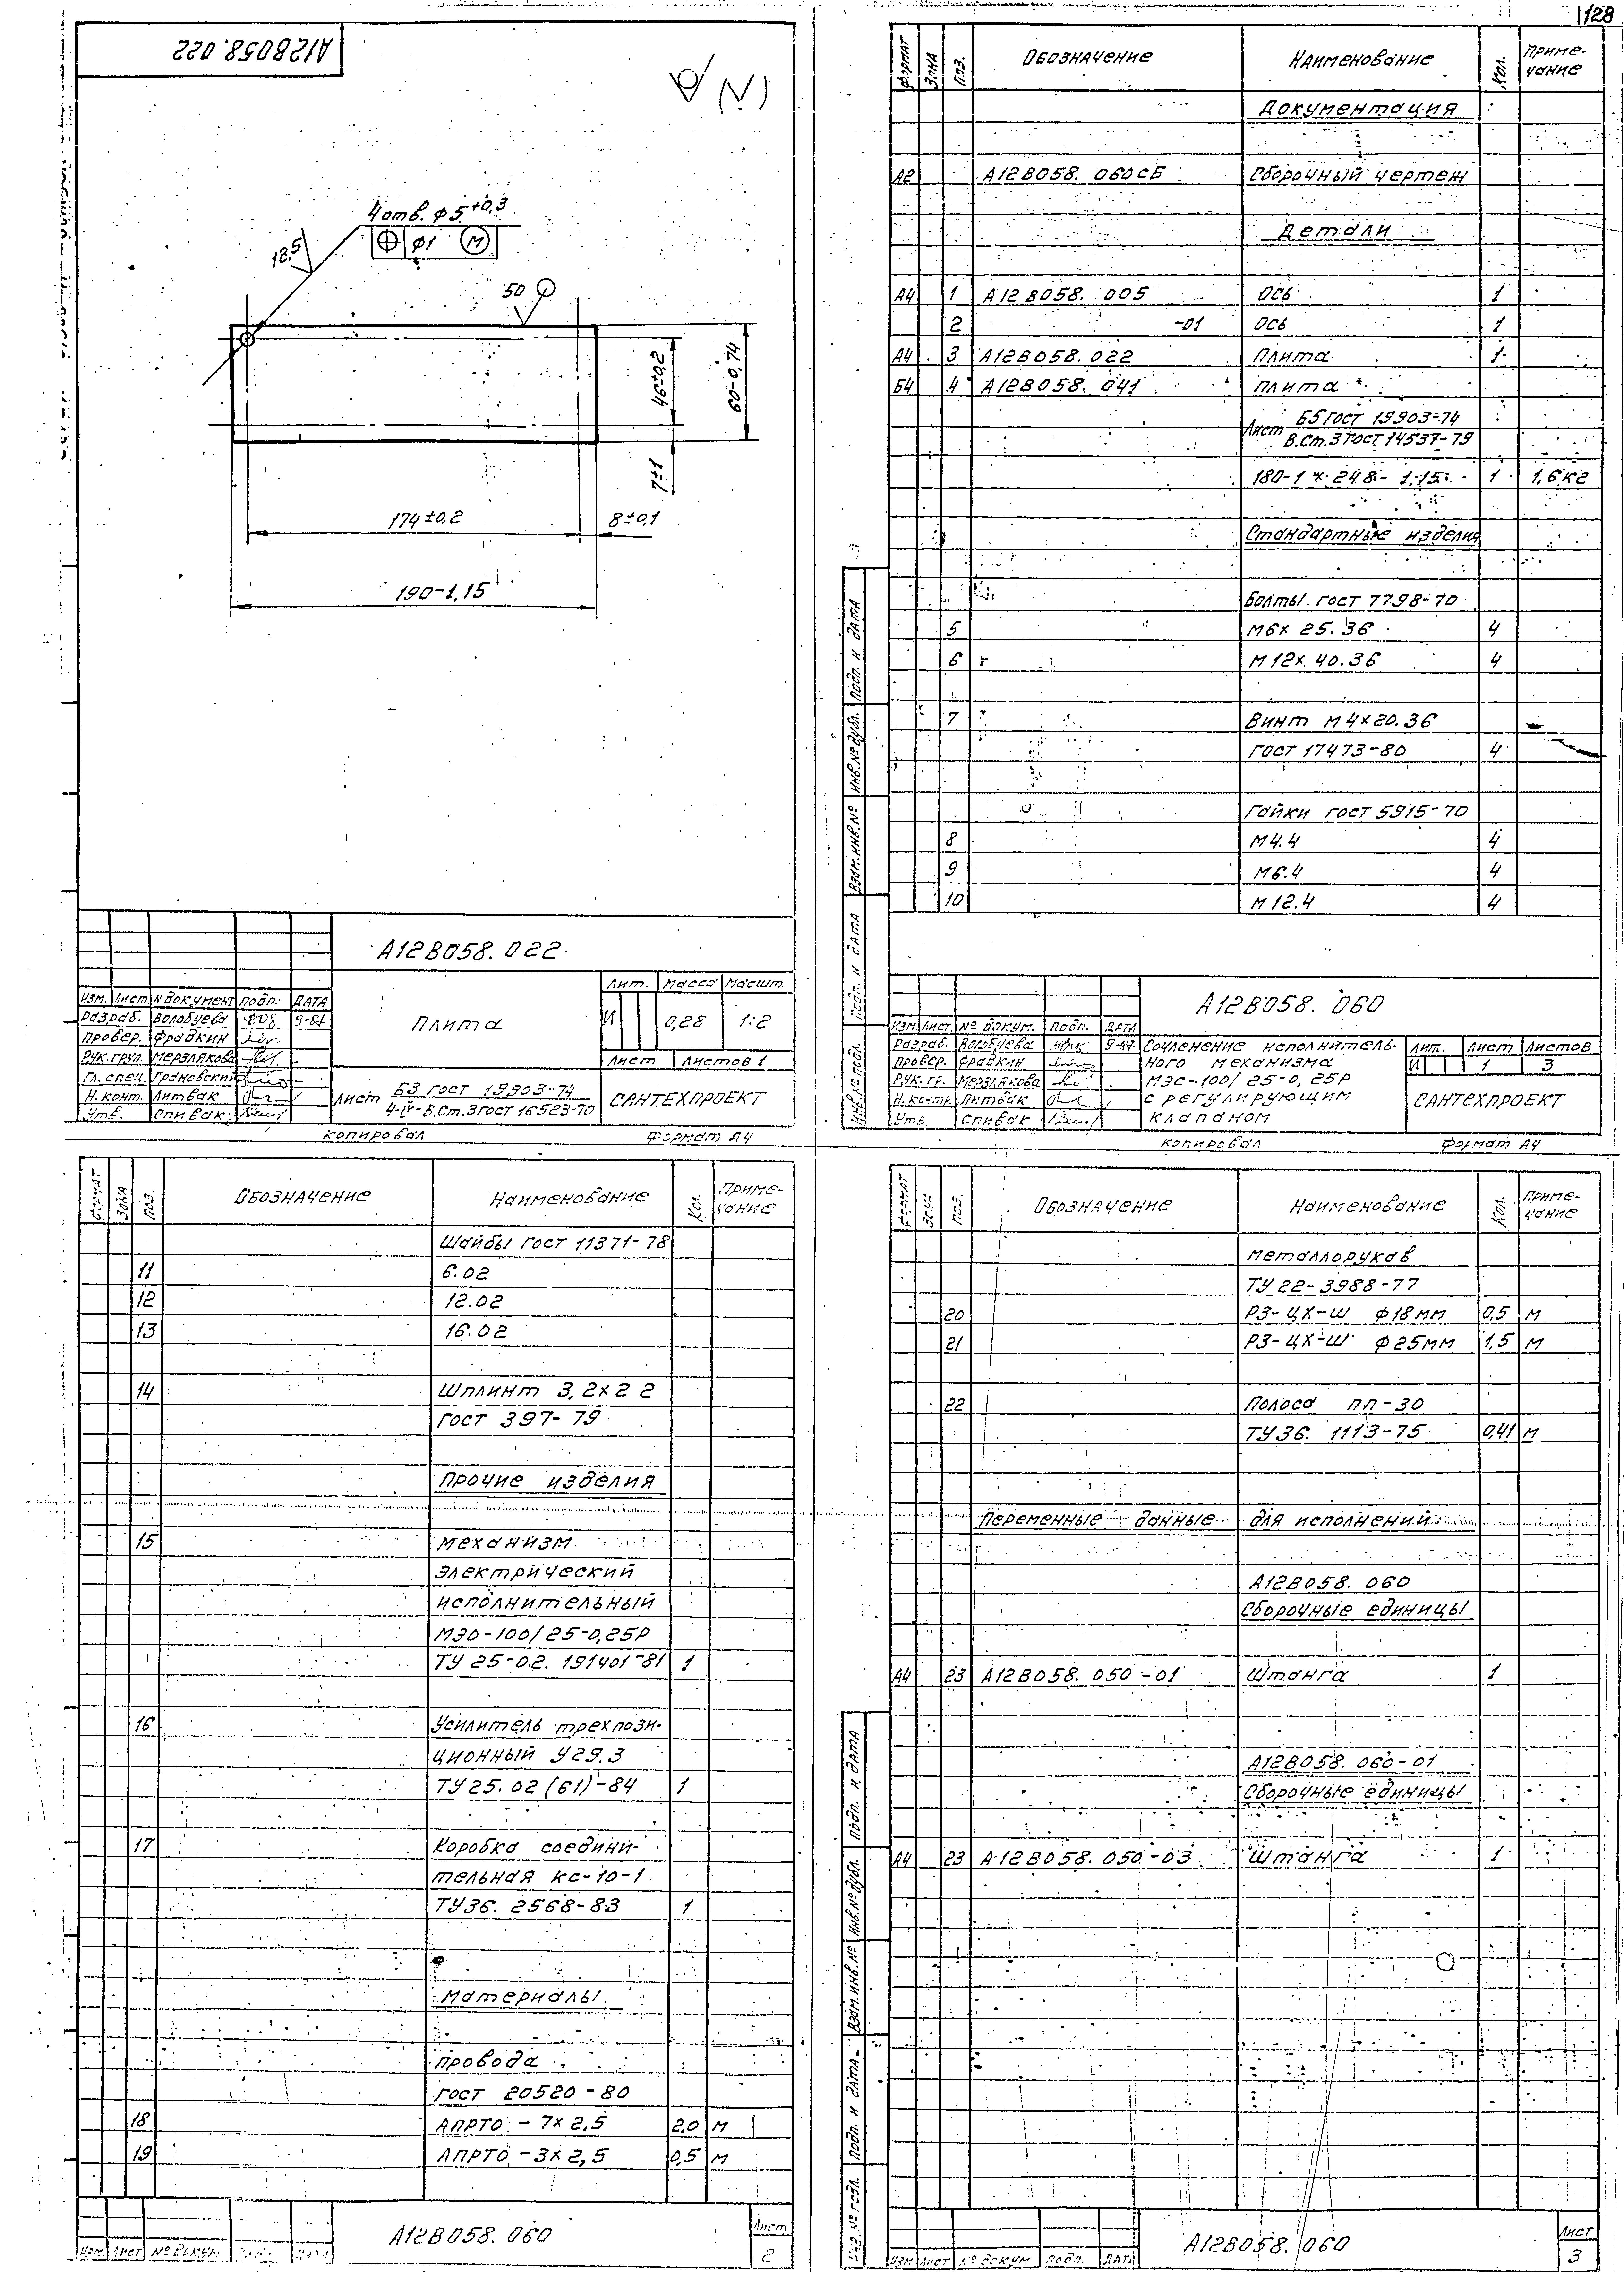 128
А12В058.022
(√)
4 отв. ф5 +0,3
ф1 М
12,5
50
46±0,2
60-0,74
7±1
174±0,2
8±0,1
190-1,15
А12В058.022
Изм. Лист № документ Подп. Дата
Разраб. Волобуева 9-87
Провер. Фрадкин
Рук.груп. Мерзлякова
Гл. спец. Грановский
Н.конт. Литвак
Утв. Спивак
Плита
Лит. Масса Масшт.
И 0,28 1:2
Лист Листов 1
Лист Б3 ГОСТ 19903-74
4-IV-В.Ст.3 ГОСТ 16523-70
САНТЕХПРОЕКТ
Копировал Формат А4
Формат Зона Поз. Обозначение Наименование Кол. Приме-
чание
Документация
А2 А12В058.060СБ Сборочный чертеж
Детали
А4 1 А12В058.005 Ось 1
2 -01 Ось 1
А4 3 А12В058.022 Плита 1
Б4 4 А12В058.041 Плита
Лист Б5 ГОСТ 19903-74
В.Ст.3 ГОСТ 14537-79
180-1 × 248-1.15 1 1,6кг
Стандартные изделия
Болты ГОСТ 7798-70
5 М6×25.36 4
6 М12×40.36 4
7 Винт М4×20.36
ГОСТ 17473-80 4
Гайки ГОСТ 5915-70
8 М4.4 4
9 М6.4 4
10 М12.4 4
Инв.№ подл. Подп. и дата Взам.инв.№ Инв.№ дубл. Подп. и дата
А12В058.060
Изм. Лист. № докум. Подп. Дата
Разраб. Волобуева 9-87
Провер. Фрадкин
Рук.гр. Мерзлякова
Н.контр. Литвак
Утв. Спивак
Сочленение исполнитель-
ного механизма
МЭС-100/25-0,25Р
с регулирующим
клапаном
Лит. Лист Листов
И 1 3
САНТЕХПРОЕКТ
Копировал Формат А4
Формат Зона Поз. Обозначение Наименование Кол. Приме-
чание
Шайбы ГОСТ 11371-78
11 6.02
12 12.02
13 16.02
14 Шплинт 3,2×22
ГОСТ 397-79
Прочие изделия
15 Механизм
электрический
исполнительный
МЭО-100/25-0,25Р
ТУ 25-02.191401-81 1
16 Усилитель трехпози-
ционный У29.3
ТУ25.02(61)-84 1
17 Коробка соедини-
тельная КС-10-1
ТУ36.2568-83 1
Материалы
Провода
ГОСТ 20520-80
18 АПРТО - 7×2,5 2,0 м
19 АПРТО - 3×2,5 0,5 м
Изм. Лист № докум
А12В058.060
Лист
2
Формат Зона Поз. Обозначение Наименование Кол. Приме-
чание
Металлорукав
ТУ 22-3988-77
20 РЗ-ЦХ-Ш ф18мм 0,5 м
21 РЗ-ЦХ-Ш ф25мм 1,5 м
22 Полоса ПП-30
ТУ36.1113-75 0,41 м
Переменные данные для исполнений:
А12В058.060
Сборочные единицы
А4 23 А12В058.050-01 Штанга 1
А12В058.060-01
Сборочные единицы
А4 23 А12В058.050-03 Штанга 1
Инв.№ подл. Подп. и дата Взам.инв.№ Инв.№ дубл. Подп. и дата
Изм. Лист № докум Подп. Дата
А12В058.060
Лист
3